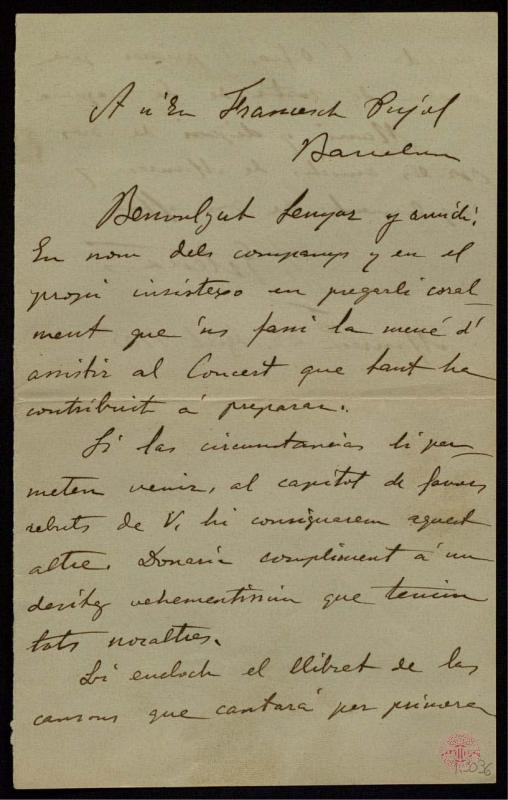 A n'En Francesch Pujol
Barcelona
Benvolgut Senyor y amich:
En nom dels companys y en el
propi insistexo en pregarli coral-
ment que 'ns fassi la mercé d'
assistir al Concert que tant ha
contribuit á preparar.
Si las circunstancias li per
meten venir, al capítol de favors
rebuts de V. hi consignarem aquest
altre. Donaria compliment á un
desitg vehementissim que tenim
tots nosaltres.
Li encloch el llibret de las
cansons que cantará per primera
13036